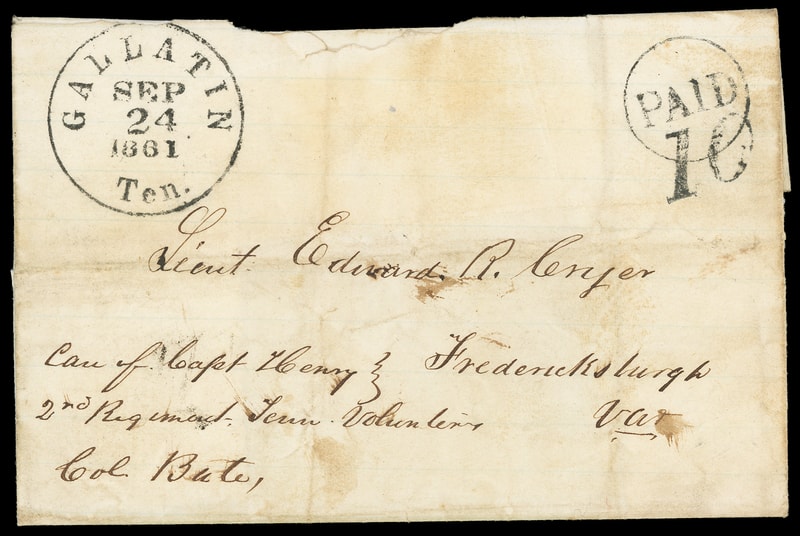 GALLATIN
SEP
24
1861
Ten.
PAID
10
Lieut. Edward. R. Cryer
Care of Capt Henry
Fredericksburgh
2nd Regiment. Tenn Volunteers
Va
Col Bate,